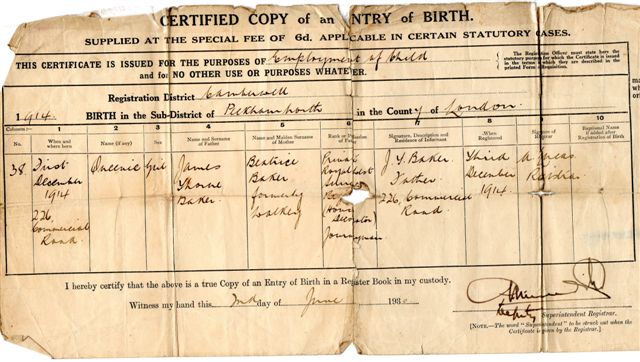 CERTIFIED COPY of an ENTRY OF BIRTH.
SUPPLIED AT THE SPECIAL FEE OF 6d. APPLICABLE IN CERTAIN STATUTORY CASES.
THIS CERTIFICATE IS ISSUED FOR THE PURPOSES OF Employment of Child
and for NO OTHER USE OR PURPOSES WHATEVER.
The Registration Officer must state here the
statutory purpose for which the Certificate is issued
in the terms in which they are described in the
printed Form of Requisition.
Registration District Camberwell
1914. BIRTH in the Sub-District of Peckham North in the County of London.
Columns:— 1 2 3 4 5 6 7 8 9 10
No. When and where born Name (if any) Sex Name and Surname of Father Name and Maiden Surname of Mother Rank or Profession of Father Signature, Description and Residence of Informant When Registered Signature of Registrar Baptismal Name if added after Registration of Birth
38. First December 1914 226, Commercial Road.
Queenie
Girl
James Thorne Baker
Beatrice Baker formerly
Private Royal West Surrey (House Decorator) Journeyman
J. T. Baker Father 226, Commercial Road
Third December 1914.
Registrar
I hereby certify that the above is a true Copy of an Entry of Birth in a Register Book in my custody.
Witness my hand this 2nd day of June 193
Deputy Superintendent Registrar.
[NOTE.—The word "Superintendent" to be struck out when the
Certificate is given by the Registrar.]